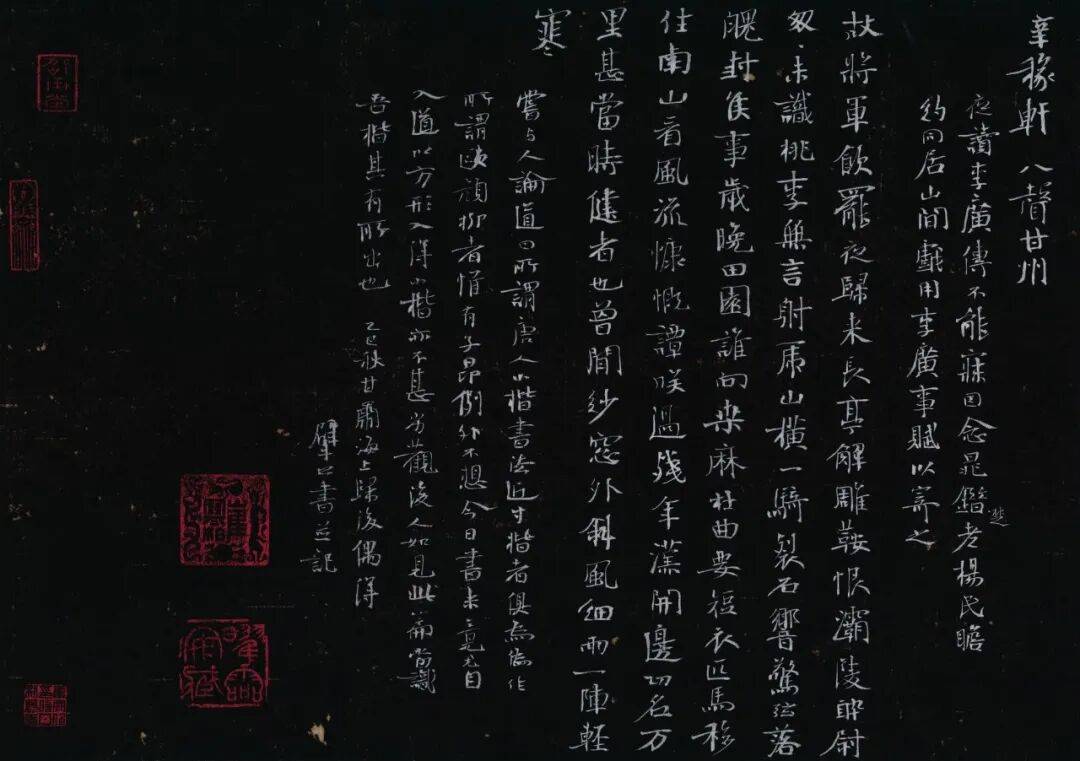 辛稼軒 八聲甘州
夜讀李廣傳不能寐因念晁楚老楊民瞻
約同居山間戲用李廣事賦以寄之
故將軍飲罷夜歸來長亭解雕鞍恨灞陵醉尉
匆〻未識桃李無言射虎山橫一騎裂石響驚弦落
魄封侯事歲晚田園誰向桑麻杜曲要短衣匹馬移
住南山看風流慷慨譚笑過殘年漢開邊功名万
里甚當時健者也曾閒紗窓外斜風細雨一陣輕
寒
嘗与人論道曰所謂唐人小楷書法近寸楷者俱無
所謂歐顏柳者惟有子昂例外不想今日書來竟尤自
入道以方形入得小楷亦不甚劣觀後人如見此篇當識
吾楷其有所出也 乙巳秋甘肅海上歸後偶得
書並記